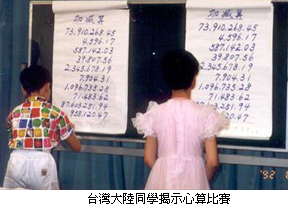 加减算
73,910,268.45
4,596.17
587,142.03
39,807.56
2,345,678.19
7,904.31
1,096,735.28
71,483.62
87,603,251.94
958,120.47
加减算
73,910,268.45
4,596.17
587,142.03
39,807.56
2,345,678.19
7,904.31
1,096,735.28
71,483.62
958,120.47
台灣大陸同學揭示心算比賽